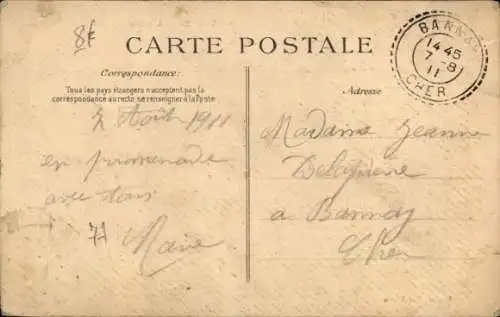 8f
CARTE POSTALE
Correspondance:
Tous les pays étrangers n'acceptent pas la
correspondance au recto, se renseigner à la Poste
7 Août 1911
en promenade
avec tous
71
Marie
Adresse
Madame Jeanne
à Bannay
Cher
BANNAY
14 45
7 - 8
11
CHER